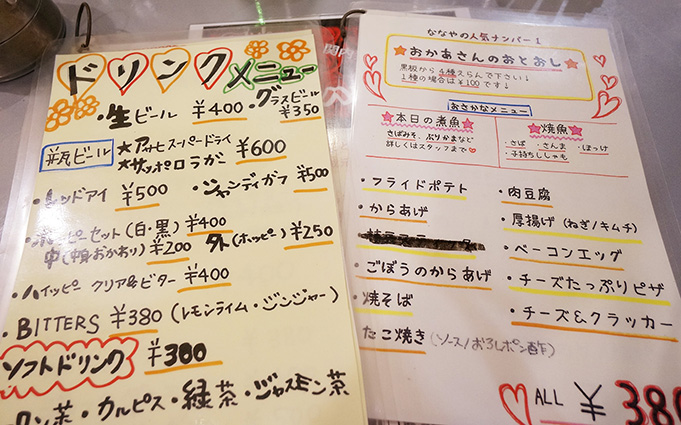 ドリンクメニュー
・生ビール ¥400 ・グラスビール ¥350
瓶ビール ★アサヒスーパードライ
★サッポロラガー ¥600
・レッドアイ ¥500 ・シャンディガフ ¥500
・ホッピーセット(白・黒) ¥400
中(焼酎おかわり) ¥200 外(ホッピー) ¥250
・ハイッピー クリア&ビター ¥400
・BITTERS ¥380 (レモンライム・ジンジャー)
ソフトドリンク ¥300
ウーロン茶・カルピス・緑茶・ジャスミン茶
ななやの人気ナンバー1
★おかあさんのおとおし★
黒板から4種えらんで下さい↓
1種の場合は¥100です↓
おさかなメニュー
★本日の煮魚★
さばみそ、ぶりかまなど
詳しくはスタッフまで♥
★焼魚★
・さば ・さんま ・ほっけ
・子持ちししゃも
・フライドポテト
・からあげ
・ごぼうのからあげ
・焼そば
・たこ焼き(ソース/おろしポン酢)
・肉豆腐
・厚揚げ(ねぎ/キムチ)
・ベーコンエッグ
・チーズたっぷりピザ
・チーズ&クラッカー
ALL ¥380
関内